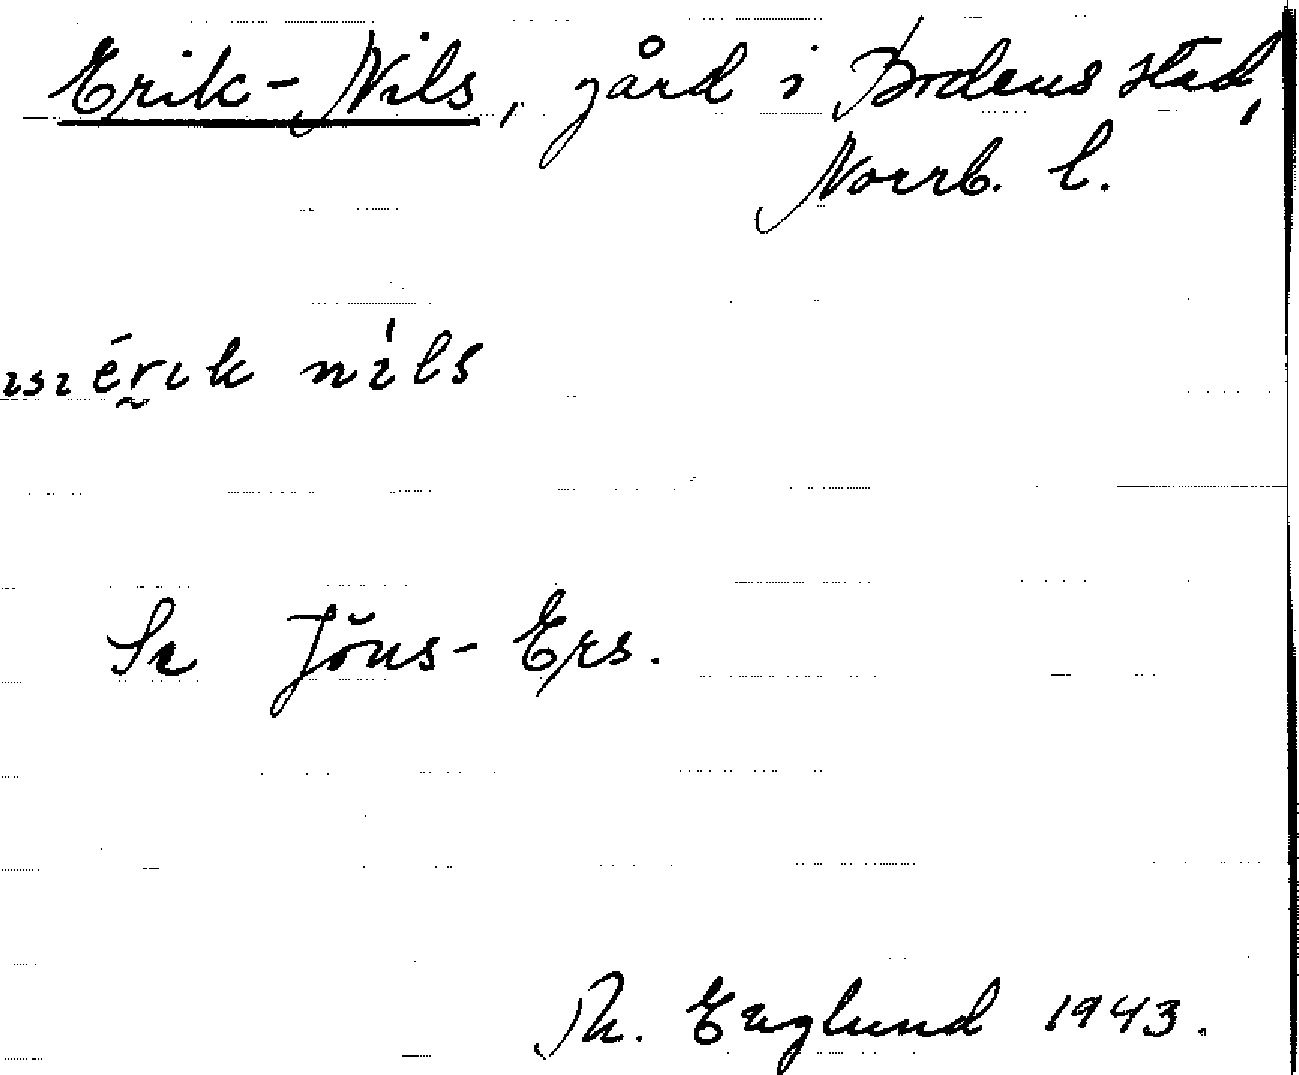 Erik-Nils, gård i Bodens stad,
Norrb. l.
érik nils
Se Jöns-Ers.
Th. Englund 1943.